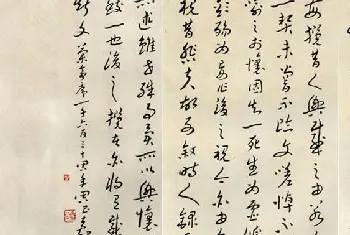 每攬昔人興感之由若
一契未嘗不臨文嗟悼不
喻之於懷固知一死生為虛
彭殤為妄作後之視今亦由
視昔悲夫故列敘時人錄
述雖世殊事異所以興懷
致一也後之攬者亦將有感
斯文 蘭亭序一千六百三十周年